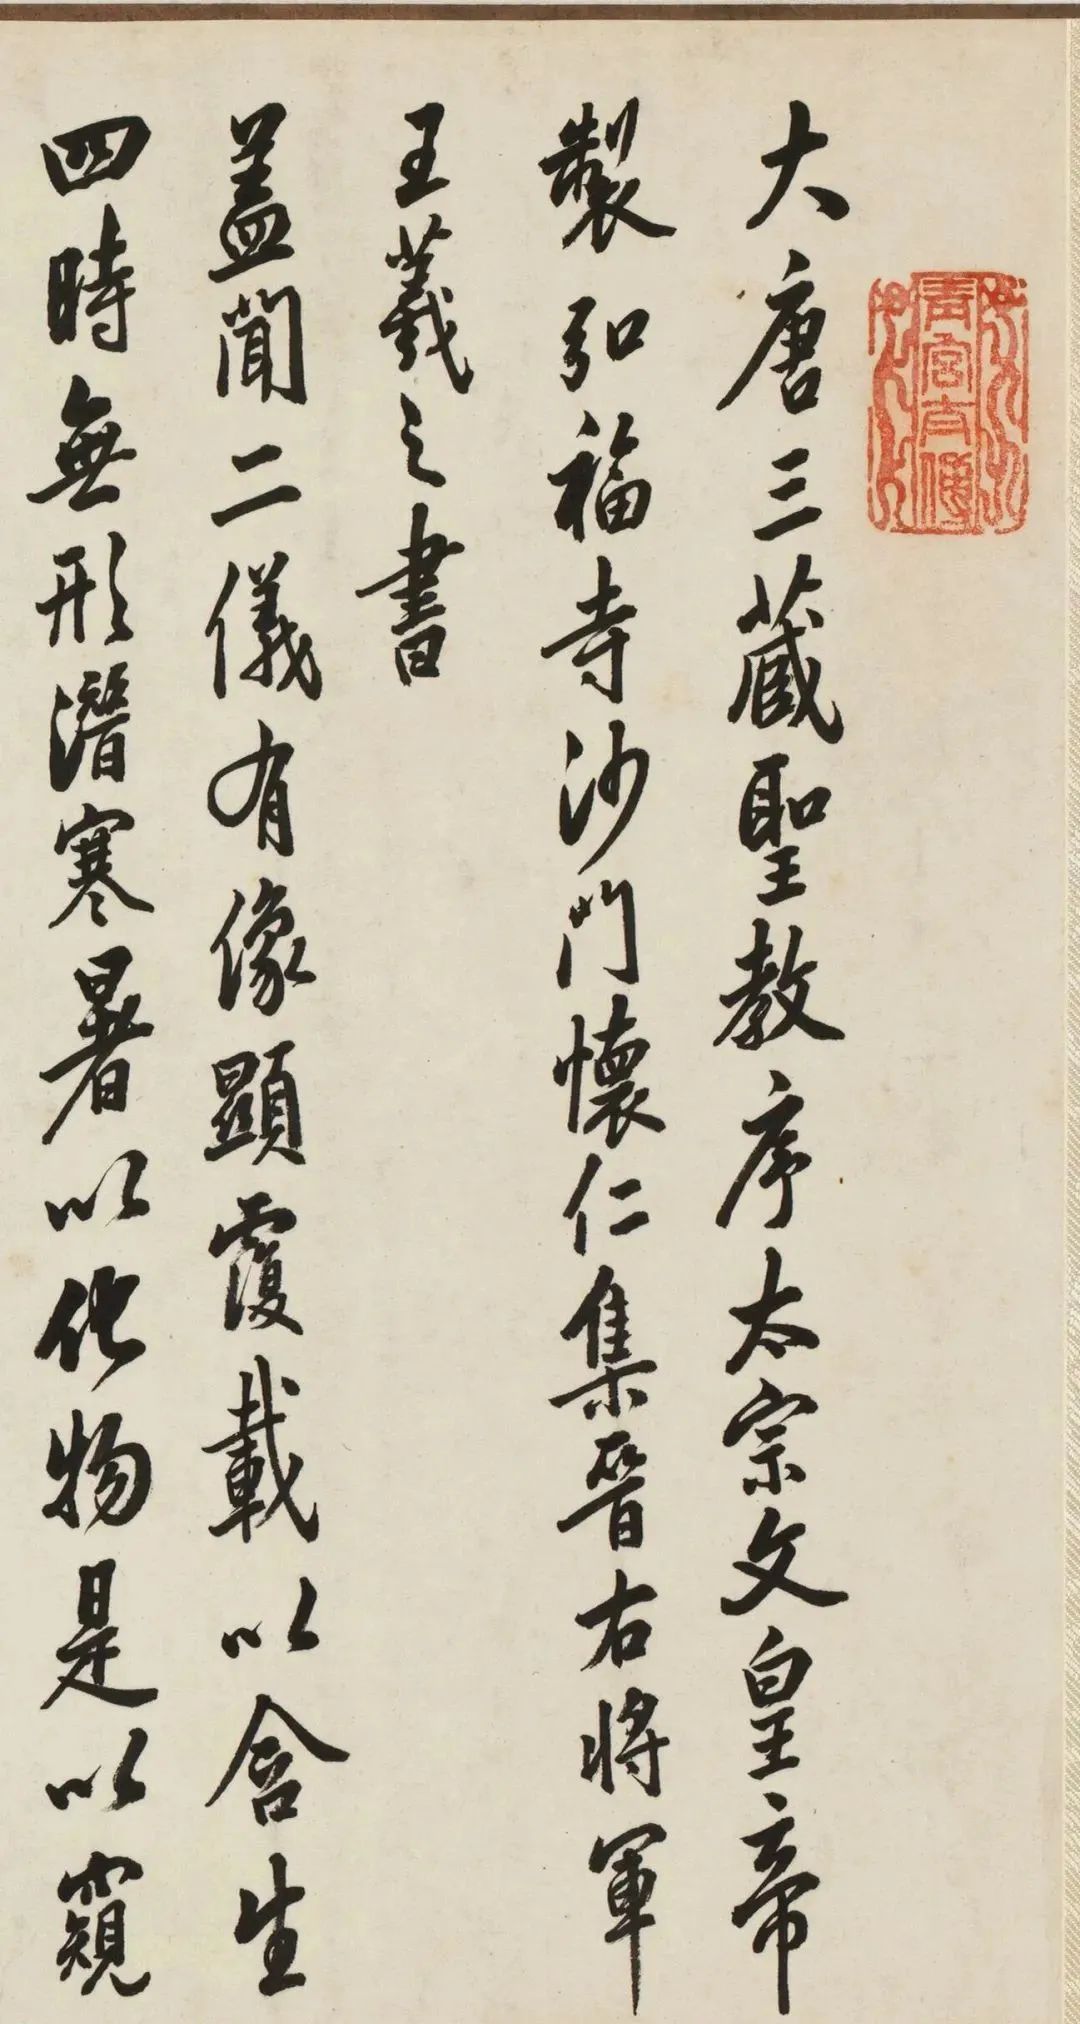 大唐三藏聖教序太宗文皇帝
製弘福寺沙門懷仁集晉右將軍
王羲之書
蓋聞二儀有像顯覆載以含生
四時無形潛寒暑以化物是以窺
青宮太傅